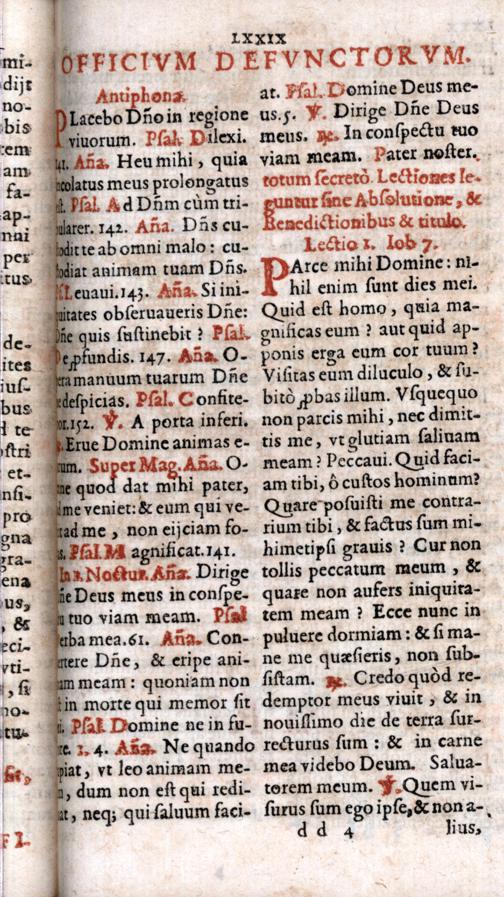 LXXIX
OFFICIVM DEFVNCTORVM.
Antiphona.
PLacebo Dño in regione
viuorum. Psal. Dilexi.
141. Aña. Heu mihi, quia
incolatus meus prolongatus
est. Psal. Ad Dñm cùm tri-
bularer. 142. Aña. Dñs cu-
stodit te ab omni malo: cu-
stodiat animam tuam Dñs.
Leuaui. 143. Aña. Si ini-
quitates obseruaueris Dñe:
Dñe quis sustinebit? Psal.
De ꝓfundis. 147. Aña. O-
pera manuum tuarum Dñe
ne despicias. Psal. Confite-
bor. 152. ℣. A porta inferi.
Erue Domine animas e-
orum. Super Mag. Aña. O-
mne quod dat mihi pater,
ad me veniet: & eum qui ve-
nit ad me, non eijciam fo-
ras. Psal. Magnificat. 141.
In 1. Noctur. Aña. Dirige
Dñe Deus meus in conspe-
ctu tuo viam meam. Psal
Verba mea. 61. Aña. Con-
uertere Dñe, & eripe ani-
mam meam: quoniam non
est in morte qui memor sit
tui. Psal. Domine ne in fu-
rore. 1. 4. Aña. Ne quando
rapiat, vt leo animam me-
am, dum non est qui redi-
mat, neq; qui saluum faci-
at. Psal. Domine Deus me-
us. 5. ℣. Dirige Dñe Deus
meus. ℟. In conspectu tuo
viam meam. Pater noster.
totum secretò. Lectiones le-
guntur sine Absolutione, &
Benedictionibus & titulo.
Lectio 1. Iob 7.
PArce mihi Domine: ni-
hil enim sunt dies mei.
Quid est homo, quia ma-
gnificas eum? aut quid ap-
ponis erga eum cor tuum?
Visitas eum diluculo, & su-
bitò ꝓbas illum. Vsquequo
non parcis mihi, nec dimit-
tis me, vt glutiam saliuam
meam? Peccaui. Quid faci-
am tibi, ô custos hominum?
Quare posuisti me contra-
rium tibi, & factus sum mi-
himetipsi grauis? Cur non
tollis peccatum meum, &
quare non aufers iniquita-
tem meam? Ecce nunc in
puluere dormiam: & si ma-
ne me quæsieris, non sub-
sistam. ℟. Credo quòd re-
demptor meus viuit, & in
nouissimo die de terra sur-
recturus sum: & in carne
mea videbo Deum. Salua-
torem meum. ℣. Quem vi-
surus sum ego ipse, & non a-
d d 4 lius,